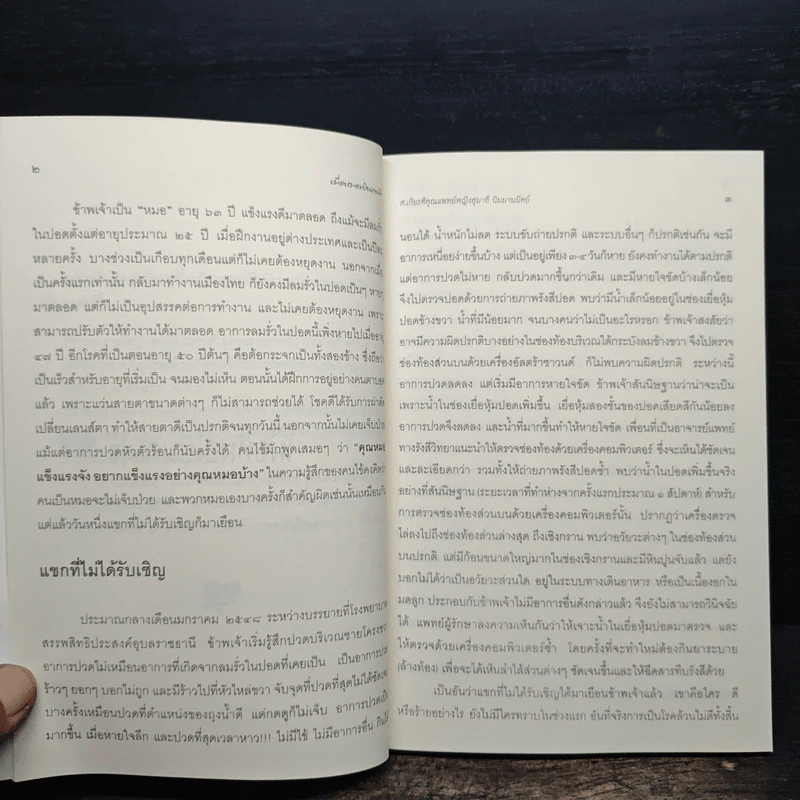 ๒
เมื่อหมอเป็นมะเร็ง
ข้าพเจ้าเป็น “หมอ” อายุ ๖๓ ปี แข็งแรงดีมาตลอด ถึงแม้จะมีลมรั่ว
ในปอดตั้งแต่อายุประมาณ ๒๕ ปี เมื่อฝึกงานอยู่ต่างประเทศและเป็นปีละ
หลายครั้ง บางช่วงเป็นเกือบทุกเดือนแต่ก็ไม่เคยต้องหยุดงาน นอกจากเมื่อ
เป็นครั้งแรกเท่านั้น กลับมาทำงานเมืองไทย ก็ยังคงมีลมรั่วในปอดเป็นๆ หายๆ
มาตลอด แต่ก็ไม่เป็นอุปสรรคต่อการทำงาน และไม่เคยต้องหยุดงาน เพราะ
สามารถปรับตัวให้ทำงานได้มาตลอด อาการลมรั่วในปอดนี้เพิ่งหายไปเมื่ออายุ
๔๗ ปี อีกโรคที่เป็นตอนอายุ ๕๐ ปีต้นๆ คือต้อกระจกเป็นทั้งสองข้าง ซึ่งถือว่า
เป็นเร็วสำหรับอายุที่เริ่มเป็น จนมองไม่เห็น ตอนนั้นได้ฝึกการอยู่อย่างคนตาบอด
แล้ว เพราะแว่นสายตาขนาดต่างๆ ก็ไม่สามารถช่วยได้ โชคดีได้รับการผ่าตัด
เปลี่ยนเลนส์ตา ทำให้สายตาดีเป็นปรกติจนทุกวันนี้ นอกจากนั้นไม่เคยเจ็บป่วย
แม้แต่อาการปวดหัวตัวร้อนก็นับครั้งได้ คนไข้มักพูดเสมอๆ ว่า “คุณหมอ
แข็งแรงจัง อยากแข็งแรงอย่างคุณหมอบ้าง” ในความรู้สึกของคนไข้คงคิดว่า
คนเป็นหมอจะไม่เจ็บป่วย และพวกหมอเองบางครั้งก็สำคัญผิดเช่นนั้นเหมือนกัน
แต่แล้ววันหนึ่งแขกที่ไม่ได้รับเชิญก็มาเยือน
แขกที่ไม่ได้รับเชิญ
ประมาณกลางเดือนมกราคม ๒๕๔๘ ระหว่างบรรยายที่โรงพยาบาล
สรรพสิทธิประสงค์อุบลราชธานี ข้าพเจ้าเริ่มรู้สึกปวดบริเวณชายโครงขวา
อาการปวดไม่เหมือนอาการที่เกิดจากลมรั่วในปอดที่เคยเป็น เป็นอาการปวด
ร้าวๆ ยอกๆ บอกไม่ถูก และมีร้าวไปที่หัวไหล่ขวา จับจุดที่ปวดที่สุดไม่ได้ชัดเจน
บางครั้งเหมือนปวดที่ตำแหน่งของถุงน้ำดี แต่กดดูก็ไม่เจ็บ อาการปวดเป็น
มากขึ้น เมื่อหายใจลึก และปวดที่สุดเวลาหาว!!! ไม่มีไข้ ไม่มีอาการอื่น กินได้
ศ.เกียรติคุณแพทย์หญิงสุมาลี นิมมานนิตย์
๓
นอนได้ น้ำหนักไม่ลด ระบบขับถ่ายปรกติ และระบบอื่นๆ ก็ปรกติเช่นกัน จะมี
อาการเหนื่อยง่ายขึ้นบ้าง แต่เป็นอยู่เพียง ๓-๔ วันก็หาย ยังคงทำงานได้ตามปรกติ
แต่อาการปวดไม่หาย กลับปวดมากขึ้นกว่าเดิม และมีหายใจขัดบ้างเล็กน้อย
จึงไปตรวจปอดด้วยการถ่ายภาพรังสีปอด พบว่ามีน้ำเล็กน้อยอยู่ในช่องเยื่อหุ้ม
ปอดข้างขวา น้ำที่มีน้อยมาก จนบางคนว่าไม่เป็นอะไรหรอก ข้าพเจ้าสงสัยว่า
อาจมีความผิดปรกติบางอย่างในช่องท้องบริเวณใต้กระบังลมข้างขวา จึงไปตรวจ
ช่องท้องส่วนบนด้วยเครื่องอัลตร้าซาวนด์ ก็ไม่พบความผิดปรกติ ระหว่างนี้
อาการปวดลดลง แต่เริ่มมีอาการหายใจขัด ข้าพเจ้าสันนิษฐานว่าน่าจะเป็น
เพราะน้ำในช่องเยื่อหุ้มปอดเพิ่มขึ้น เยื่อหุ้มสองชั้นของปอดเสียดสีกันน้อยลง
อาการปวดจึงลดลง และน้ำที่มากขึ้นทำให้หายใจขัด เพื่อนที่เป็นอาจารย์แพทย์
ทางรังสีวิทยาแนะนำให้ตรวจช่องท้องด้วยเครื่องคอมพิวเตอร์ ซึ่งจะเห็นได้ชัดเจน
และละเอียดกว่า รวมทั้งให้ถ่ายภาพรังสีปอดซ้ำ พบว่าน้ำในปอดเพิ่มขึ้นจริง
อย่างที่สันนิษฐาน (ระยะเวลาที่ทำห่างจากครั้งแรกประมาณ ๑ สัปดาห์) สำหรับ
การตรวจช่องท้องส่วนบนด้วยเครื่องคอมพิวเตอร์นั้น ปรากฏว่าเครื่องตรวจ
ไล่ลงไปถึงช่องท้องส่วนล่างสุด ถึงเชิงกราน พบว่าอวัยวะต่างๆ ในช่องท้องส่วน
บนปรกติ แต่มีก้อนขนาดใหญ่มากในช่องเชิงกรานและมีหินปูนจับแล้ว แต่ยัง
บอกไม่ได้ว่าเป็นอวัยวะส่วนใด อยู่ในระบบทางเดินอาหาร หรือเป็นเนื้องอกใน
มดลูก ประกอบกับข้าพเจ้าไม่มีอาการอื่นดังกล่าวแล้ว จึงยังไม่สามารถวินิจฉัย
ได้ แพทย์ผู้รักษาลงความเห็นกันว่าให้เจาะน้ำในเยื่อหุ้มปอดมาตรวจ และ
ให้ตรวจด้วยเครื่องคอมพิวเตอร์ซ้ำ โดยครั้งที่จะทำใหม่ต้องกินยาระบาย
(ล้างท้อง) เพื่อจะได้เห็นลำไส้ส่วนต่างๆ ชัดเจนขึ้นและให้ฉีดสารทึบรังสีด้วย
เป็นอันว่าแขกที่ไม่ได้รับเชิญได้มาเยือนข้าพเจ้าแล้ว เขาคือใคร ดี
หรือร้ายอย่างไร ยังไม่มีใครทราบในช่วงแรก อันที่จริงการเป็นโรคล้วนไม่ดีทั้งสิ้น